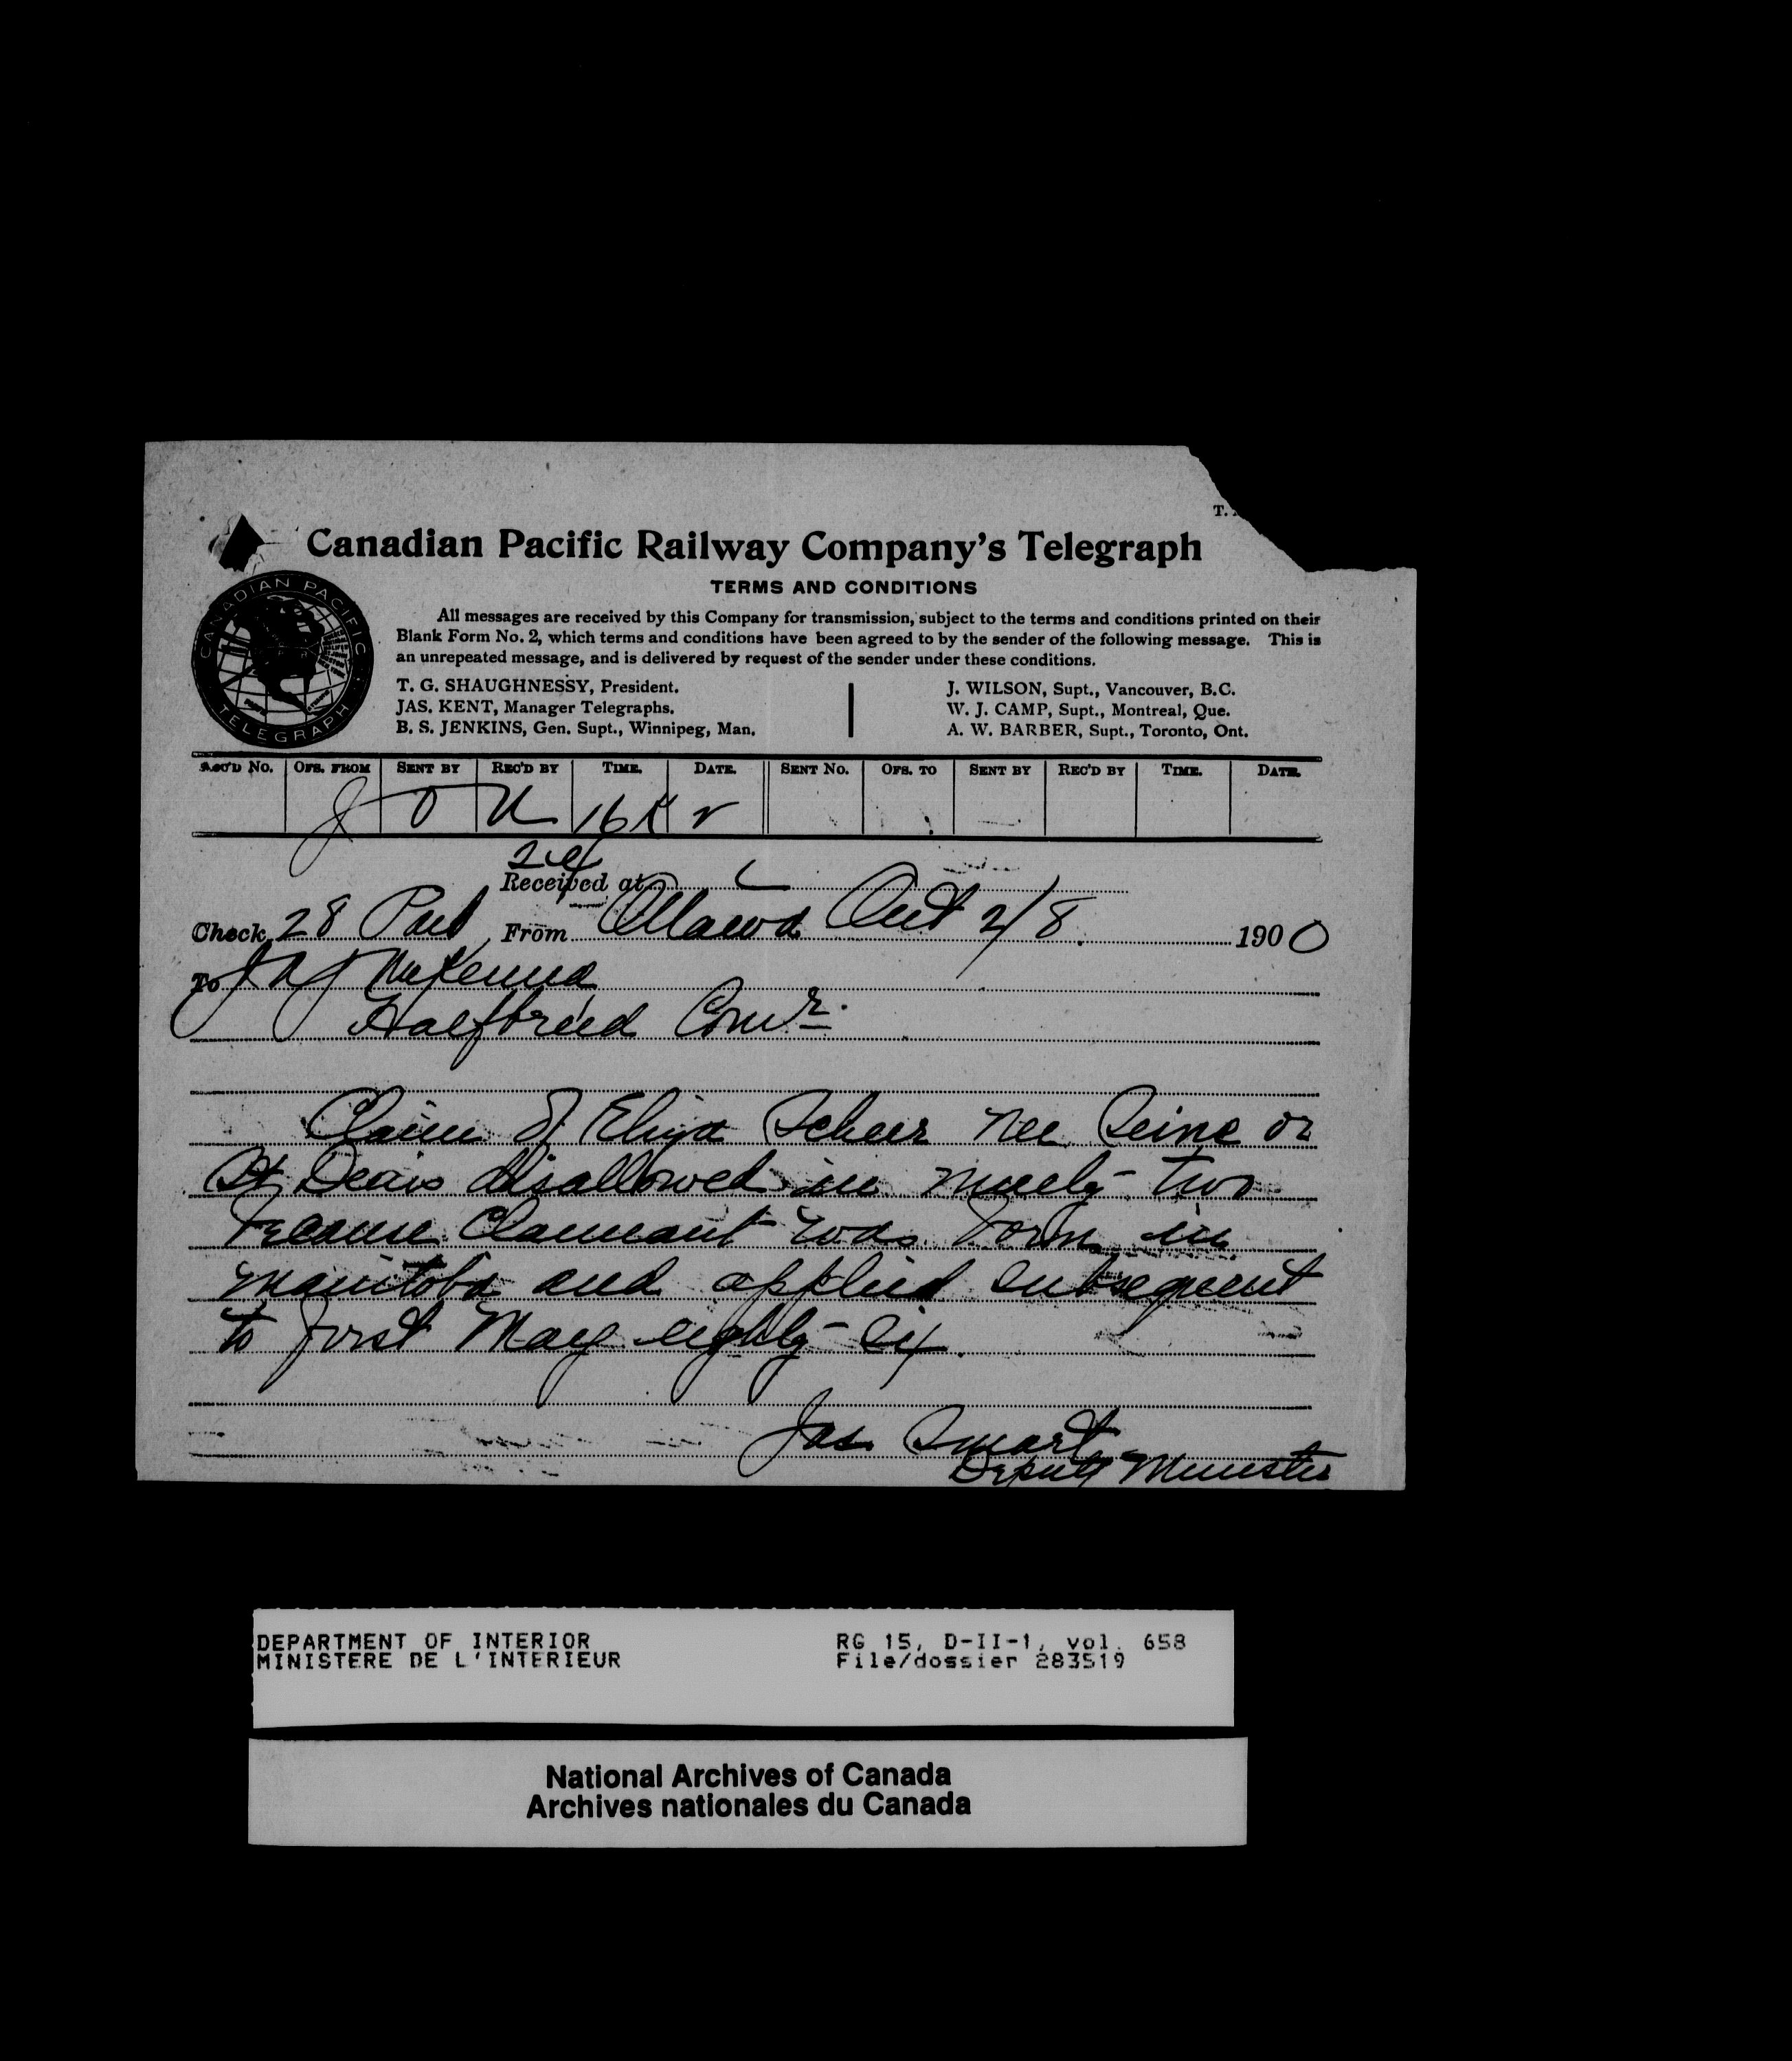 T.
Canadian Pacific Railway Company's Telegraph
CANADIAN PACIFIC
TELEGRAPH
TERMS AND CONDITIONS
All messages are received by this Company for transmission, subject to the terms and conditions printed on their
Blank Form No. 2, which terms and conditions have been agreed to by the sender of the following message. This is
an unrepeated message, and is delivered by request of the sender under these conditions.
T. G. SHAUGHNESSY, President.
JAS. KENT, Manager Telegraphs.
B. S. JENKINS, Gen. Supt., Winnipeg, Man.
J. WILSON, Supt., Vancouver, B.C.
W. J. CAMP, Supt., Montreal, Que.
A. W. BARBER, Supt., Toronto, Ont.
REC'D No. OFS. FROM SENT BY REC'D BY TIME. DATE. SENT No. OFS. TO SENT BY REC'D BY TIME. DATE.
Received at
Check 28 From Ottawa Ont 2/8 1900
To J A J McKenna
Halfbreed Comr.
Claim of Eliza Scheer nee Seine or
St Denis disallowed in ninety-two
because Claimant was born in
Manitoba and applied subsequent
to first May eighty-six.
Jas. Smart
Deputy Minister
DEPARTMENT OF INTERIOR
MINISTERE DE L'INTERIEUR
RG 15, D-II-1, vol. 658
File/dossier 283519
National Archives of Canada
Archives nationales du Canada